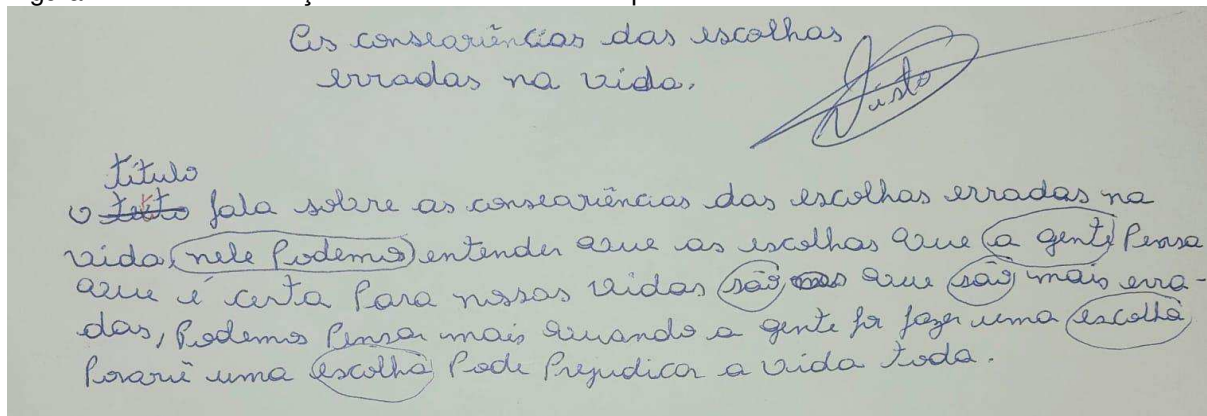 As consequências das escolhas
erradas na vida.
Visto
título
o texto fala sobre as consequências das escolhas erradas na
vida, nele Podemos entender que as escolhas que a gente Pensa
que é certa Para nossas vidas são que são mais erra-
das, Podemos Pensar mais quando a gente for fazer uma escolha
Porquê uma escolha Pode Prejudicar a vida toda.